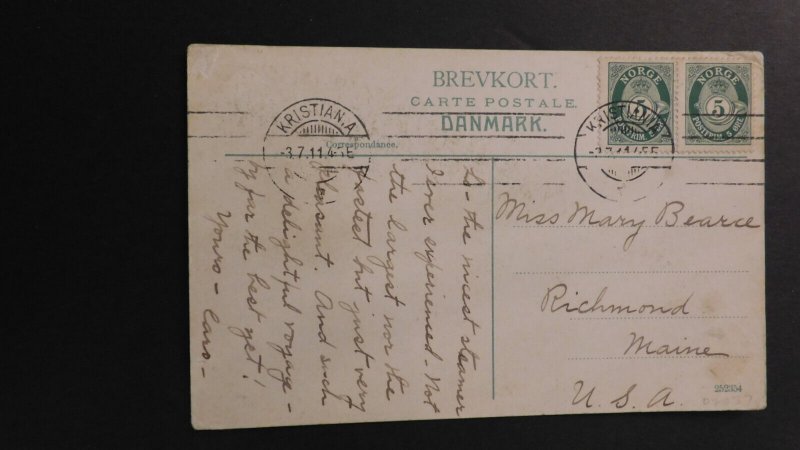 BREVKORT.
CARTE POSTALE.
DANMARK.
Correspondance.
NORGE
5
POSTFRIM. 5 ØRE
NORGE
5
POSTFRIM. 5 ØRE
KRISTIANIA
-3.7.11.4-5E
KRISTIANIA
-3.7.11.4-5E
Is - the nicest steamer
I ever experienced - Not
the largest nor the
fastest but just very
pleasant. And such
a delightful voyage -
by far the best yet!
Yours - Caro -
Miss Mary Bearce
Richmond
Maine
U. S. A.
252354